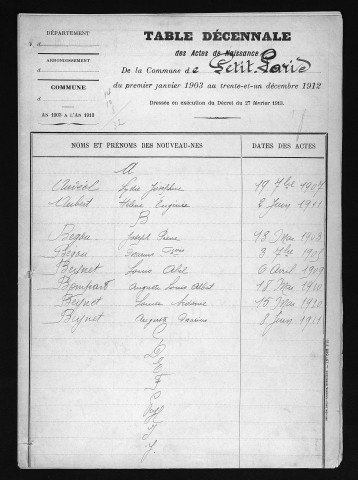 DÉPARTEMENT
d
ARRONDISSEMENT
d
COMMUNE
d
AN 1903 A L'AN 1912
TABLE DÉCENNALE
des Actes de Naissance
De la Commune de Petit Paris
du premier janvier 1903 au trente-et-un décembre 1912
Dressée en exécution du Décret du 27 février 1913.
NOMS ET PRÉNOMS DES NOUVEAU-NÉS DATES DES ACTES
A
Lydie Joséphine 19 7bre 1907
Aubert Hélène Eugénie 8 Juin 1911
B
Begou Joseph Pierre 18 Mai 1903
Begou 3 7bre
Beynet Louis Abel 6 Avril 1909
Bompard Auguste Louis Albert 18 Mai 1910
Beynet Louise 15 Mai 1910
Beynet Auguste 8 Juin 1911
D
E
F